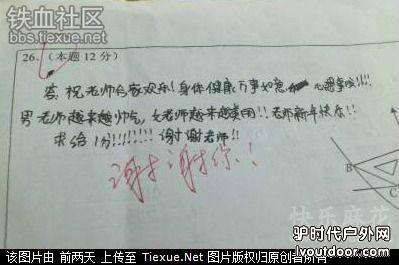 铁血社区
bbs.tiexue.net
26.(本题12分)
答:祝老师合家欢乐!身体健康 万事如意 心想事成!!!!
男老师越来越帅气,女老师越来越美丽!!老师新年快乐!!
求给1分!!!!!!!!谢谢老师!!
谢谢你!!
B
C
快乐麻花
驴时代户外网
该图片由 前两天 上传至 Tiexue.Net 图片版权归原创者所有
www.